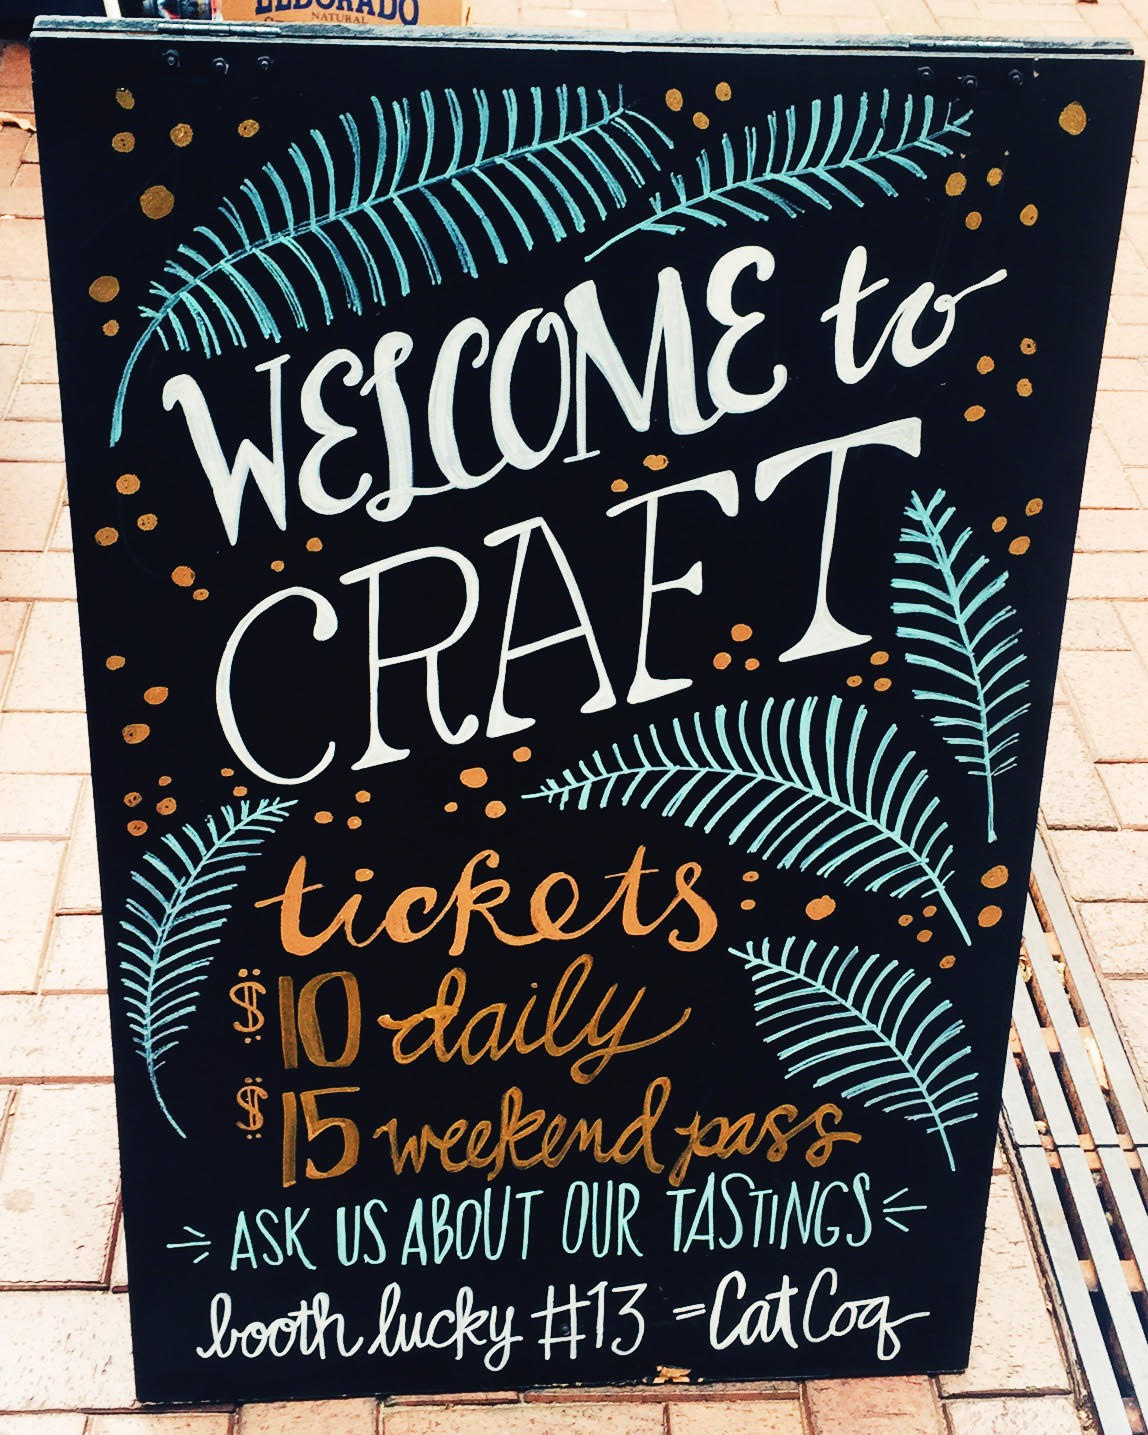 ELDORADO
NATURAL
WELCOME to
CRAFT
tickets
$10 daily
$15 weekend pass
ASK US ABOUT OUR TASTINGS
booth lucky #13 = CatCoq